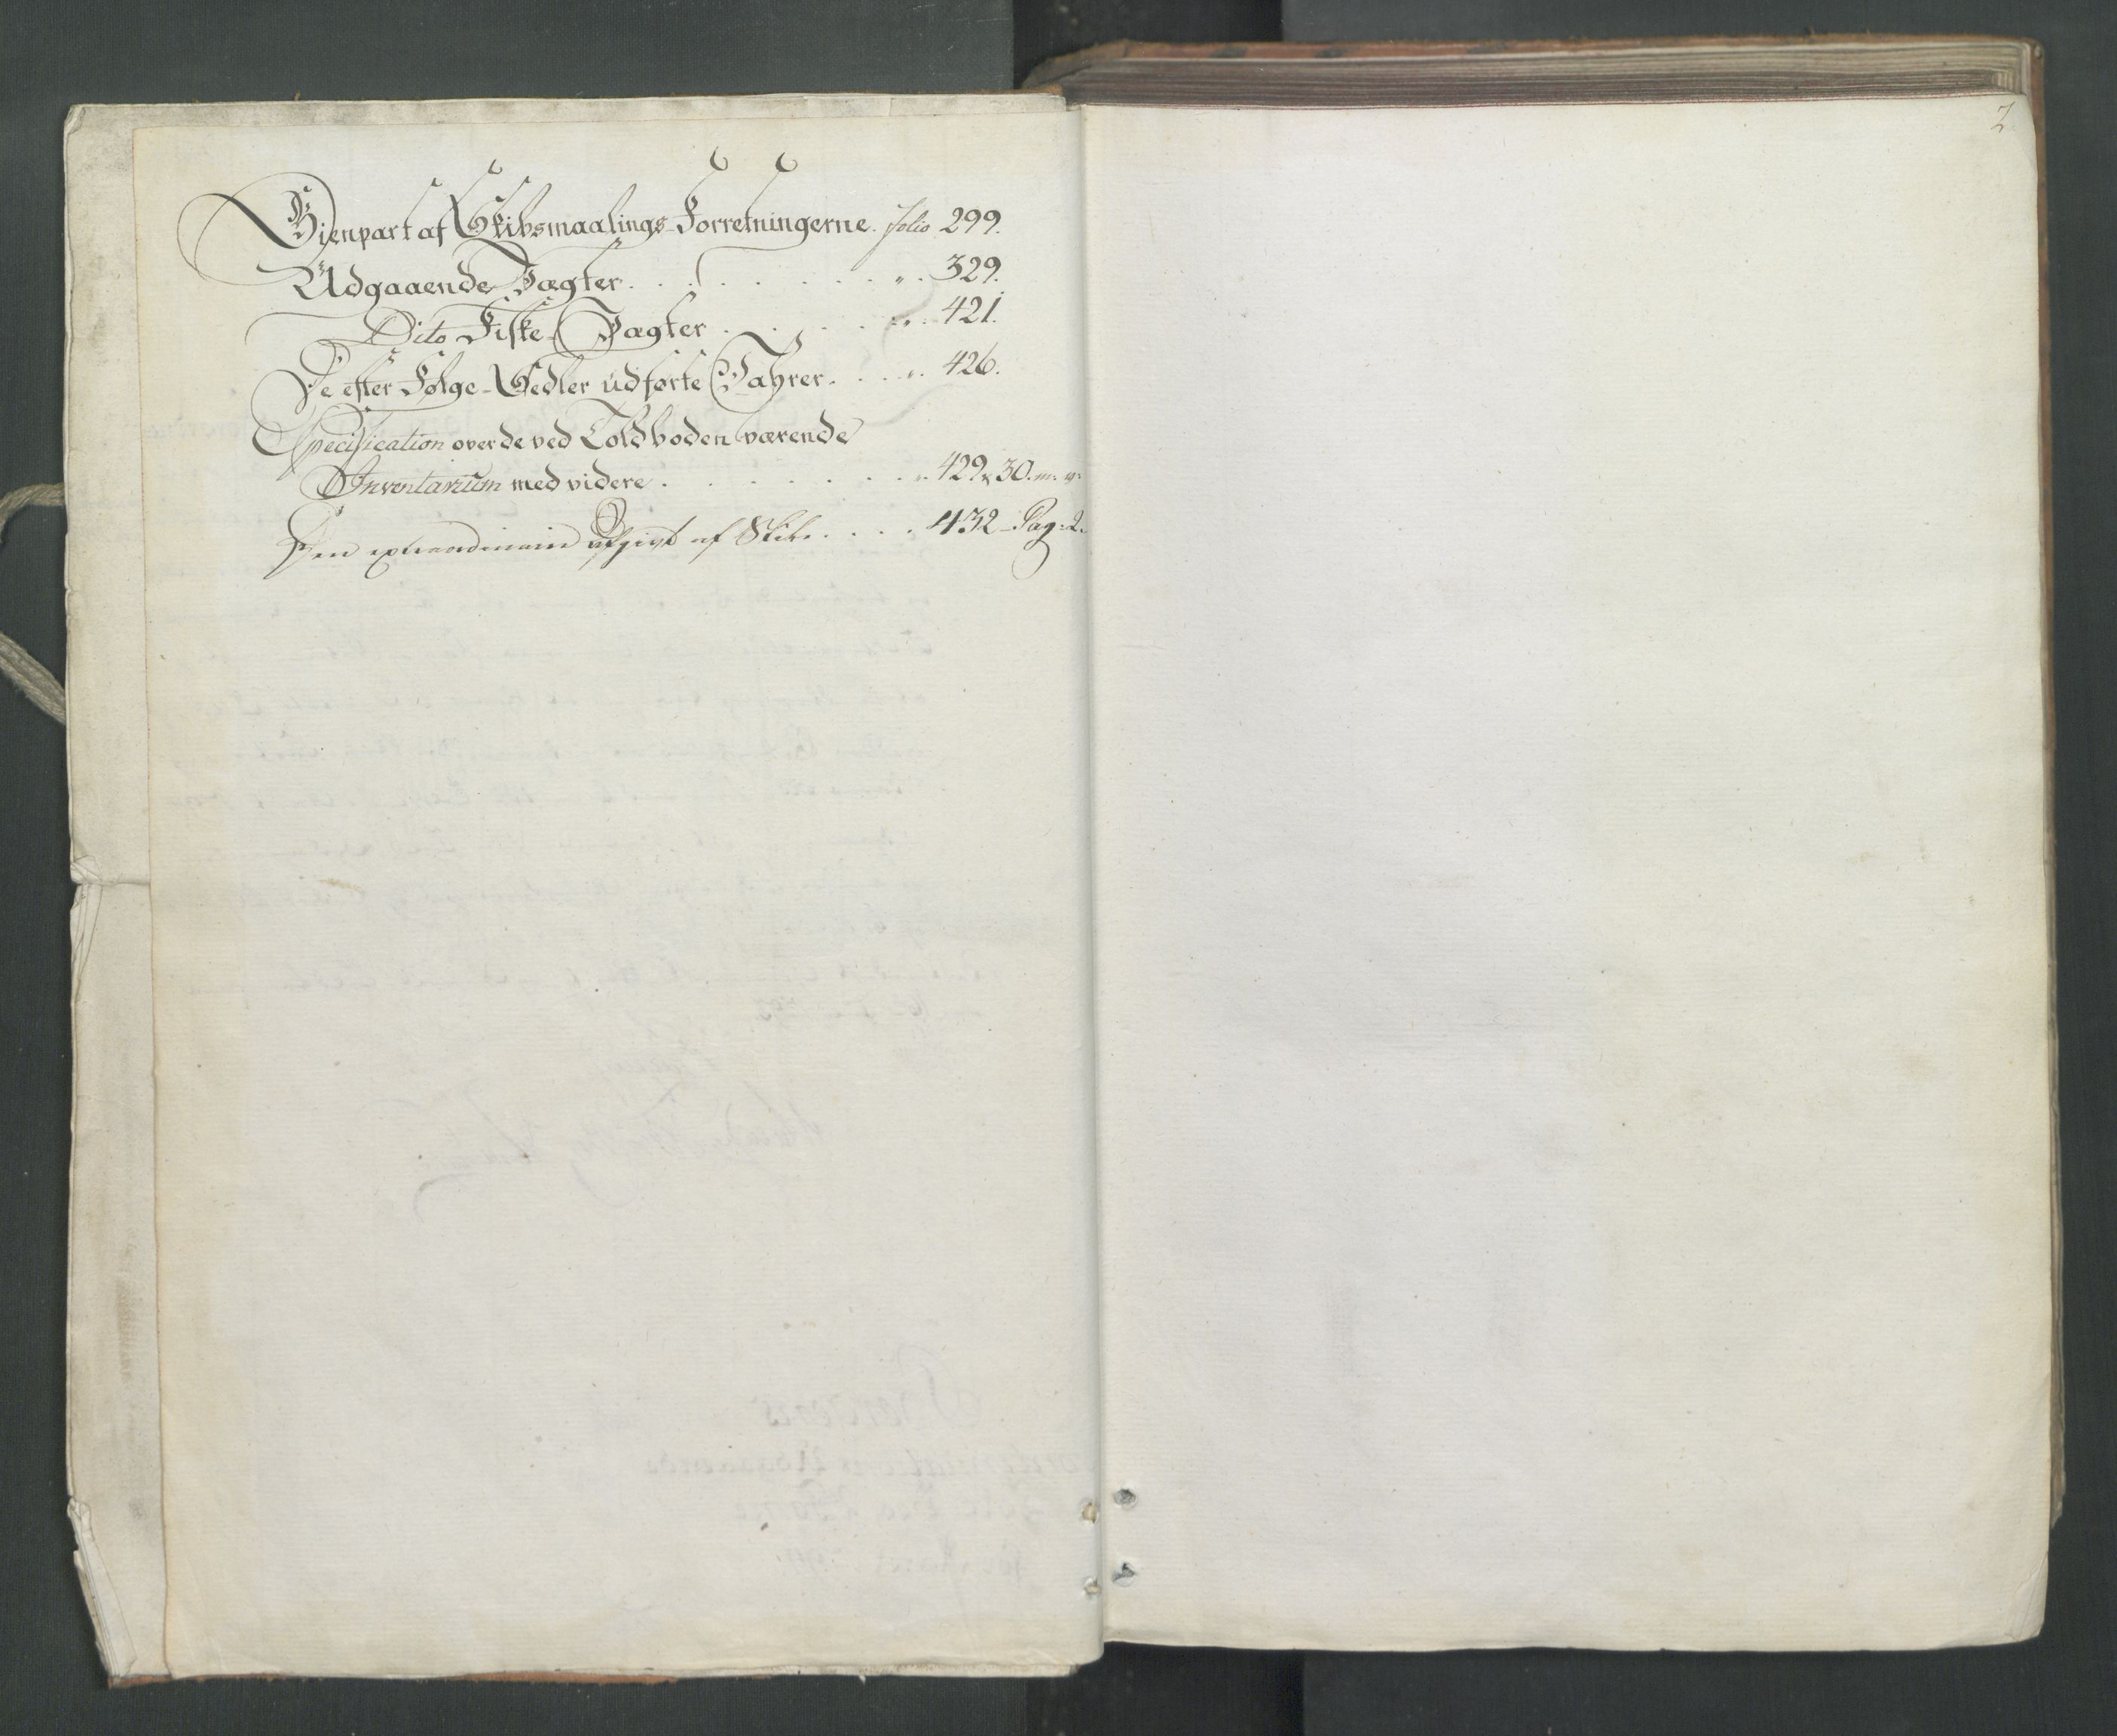 2.
Gienpart af Skibsmaalings-Forretningerne. folio 299.
Udgaaende Jægter. . . . . . . . „ . 329.
Dito Fiske-Jægter . . . . . „ . 421.
De efter Følge-Sedler udførte Vahrer. . . . „ . 426.
Specification over de ved Toldboden værende
Inventarium med videre . . . . . . . „ 429 & 30. m: v:
Den extraordinaire Afgivt af Skibe. . . . 432 - Pag: 2.